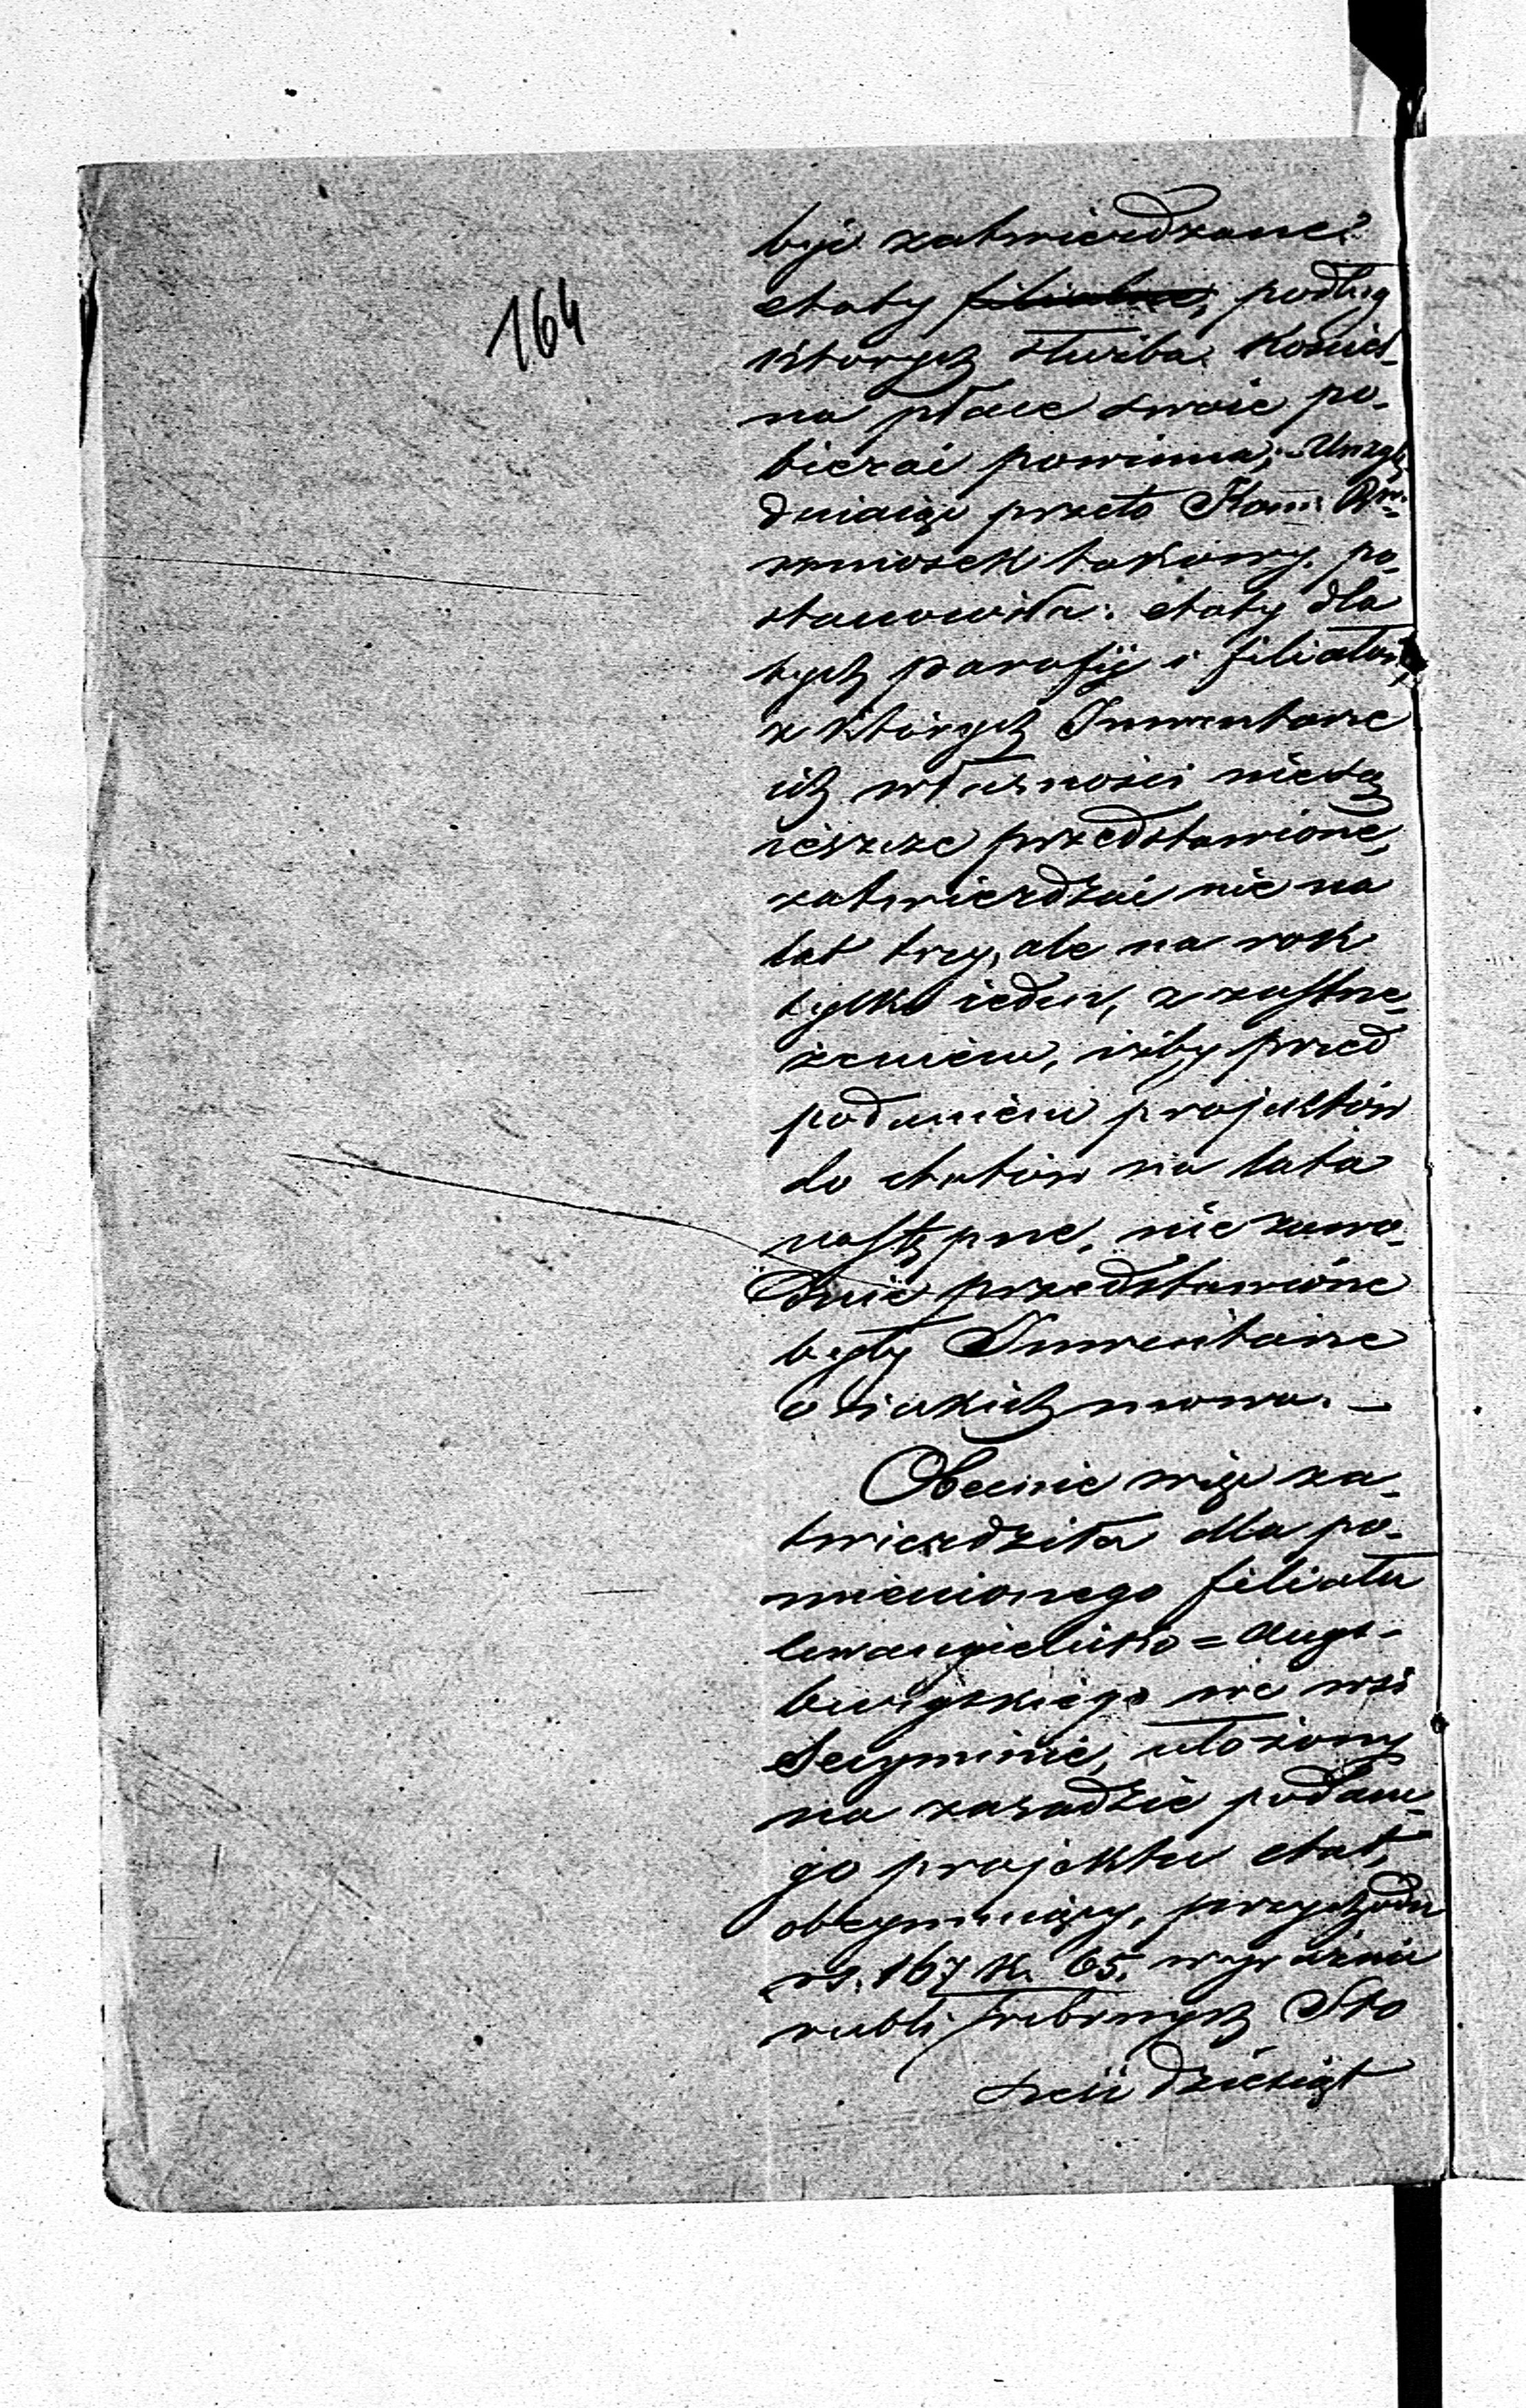 164
być zatwierdzane
etaty filialne, podług
których służba Kościel-
na płace swoie po-
bierać powinna; Uwzglę-
dniaiąc przeto Kom: Rz:
wniosek takowy, po-
stanowiła: etaty dla
tych parafij i filiałów,
z których Inwentarze
ich własności nie są
ieszcze przedstawione,
zatwierdzać nie na
lat trzy, ale na rok
tylko ieden, z zastrze-
żeniem, iżby przed
podaniem projektów
do etatów na lata
następne, niezawo-
dnie przedstawione
były Inwentarze
o iakich mowa. —
Obecnie więc za-
twierdziła dla po-
mienionego filiału
Ewangelicko=Augs-
burgskiego we wsi
Secyminie, ułożony
na zasadzie podane-
go projektu etat,
obeymuiący, przychodu
rs. 167 k. 65. wyraźnie
rubli srebrnych Sto
sześćdziesiąt